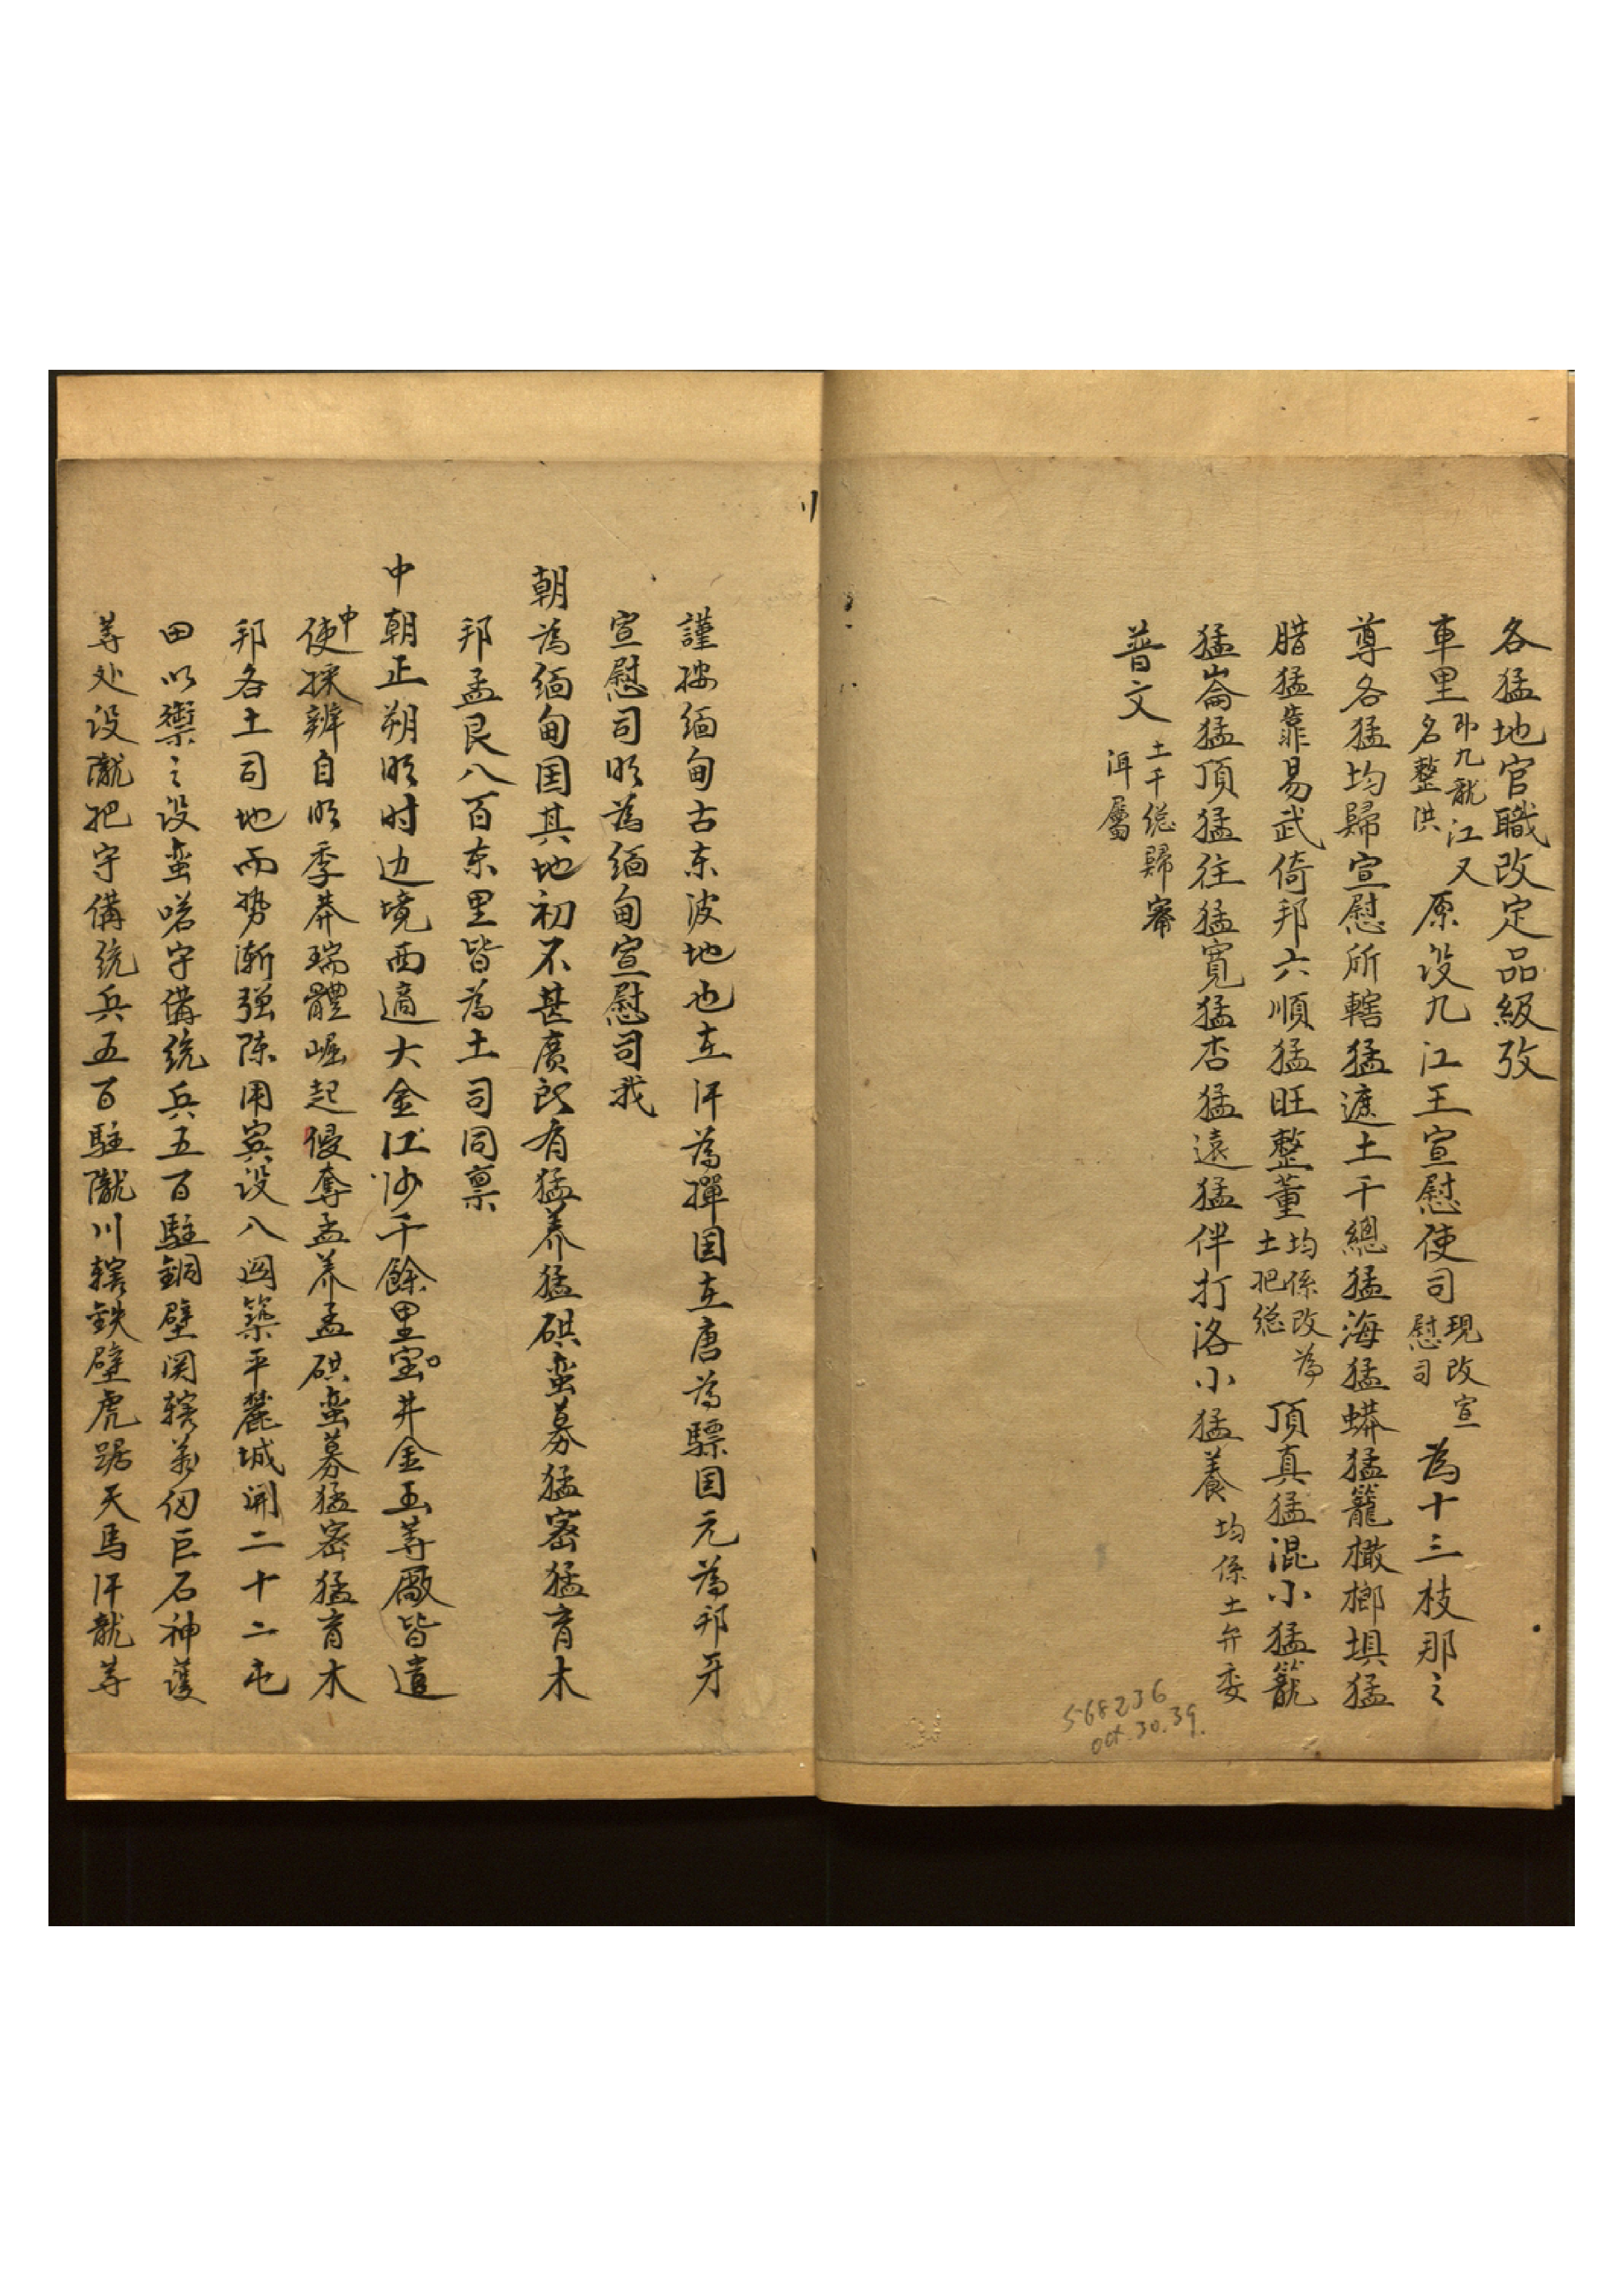 各猛地官職改定品級攷
車里 即九龍江又名整洪 原设九江王宣慰使司 現改宣慰司 為十三枝那之
尊各猛均歸宣慰所轄猛遮土千總猛海猛蟒猛籠橄榔垻猛
腊猛龍易武倚邦六順猛旺整董 均係改為土把総 頂真猛混小猛籠
猛崙猛頂猛往猛寬猛杏猛遠猛伴打洛小猛養 均係土弁委
普文 土千総歸寧洱屬
568236
oct. 30. 39.
謹按缅甸古朱波地也在汗為撣国在唐為驃国元為邦牙
宣慰司明為缅甸宣慰司我
朝為缅甸国其地初不甚廣郎有猛养猛硔蛮募猛密猛育木
邦孟艮八百车里皆為土司同禀
中朝正朔明时边境西適大金江沙千餘里宝井金玉等廠皆遣
中使採辨自明季莽瑞體崛起侵奪孟养孟硔蛮募猛密猛育木
邦各土司地而势渐强陈用宾设八関築平麓城開二十二屯
田以禦之设蛮哈守備统兵五百駐銅壁関轄萬仞巨石神護
等处设隴把守備统兵五百駐隴川轄鉄壁虎踞天馬汗龍等